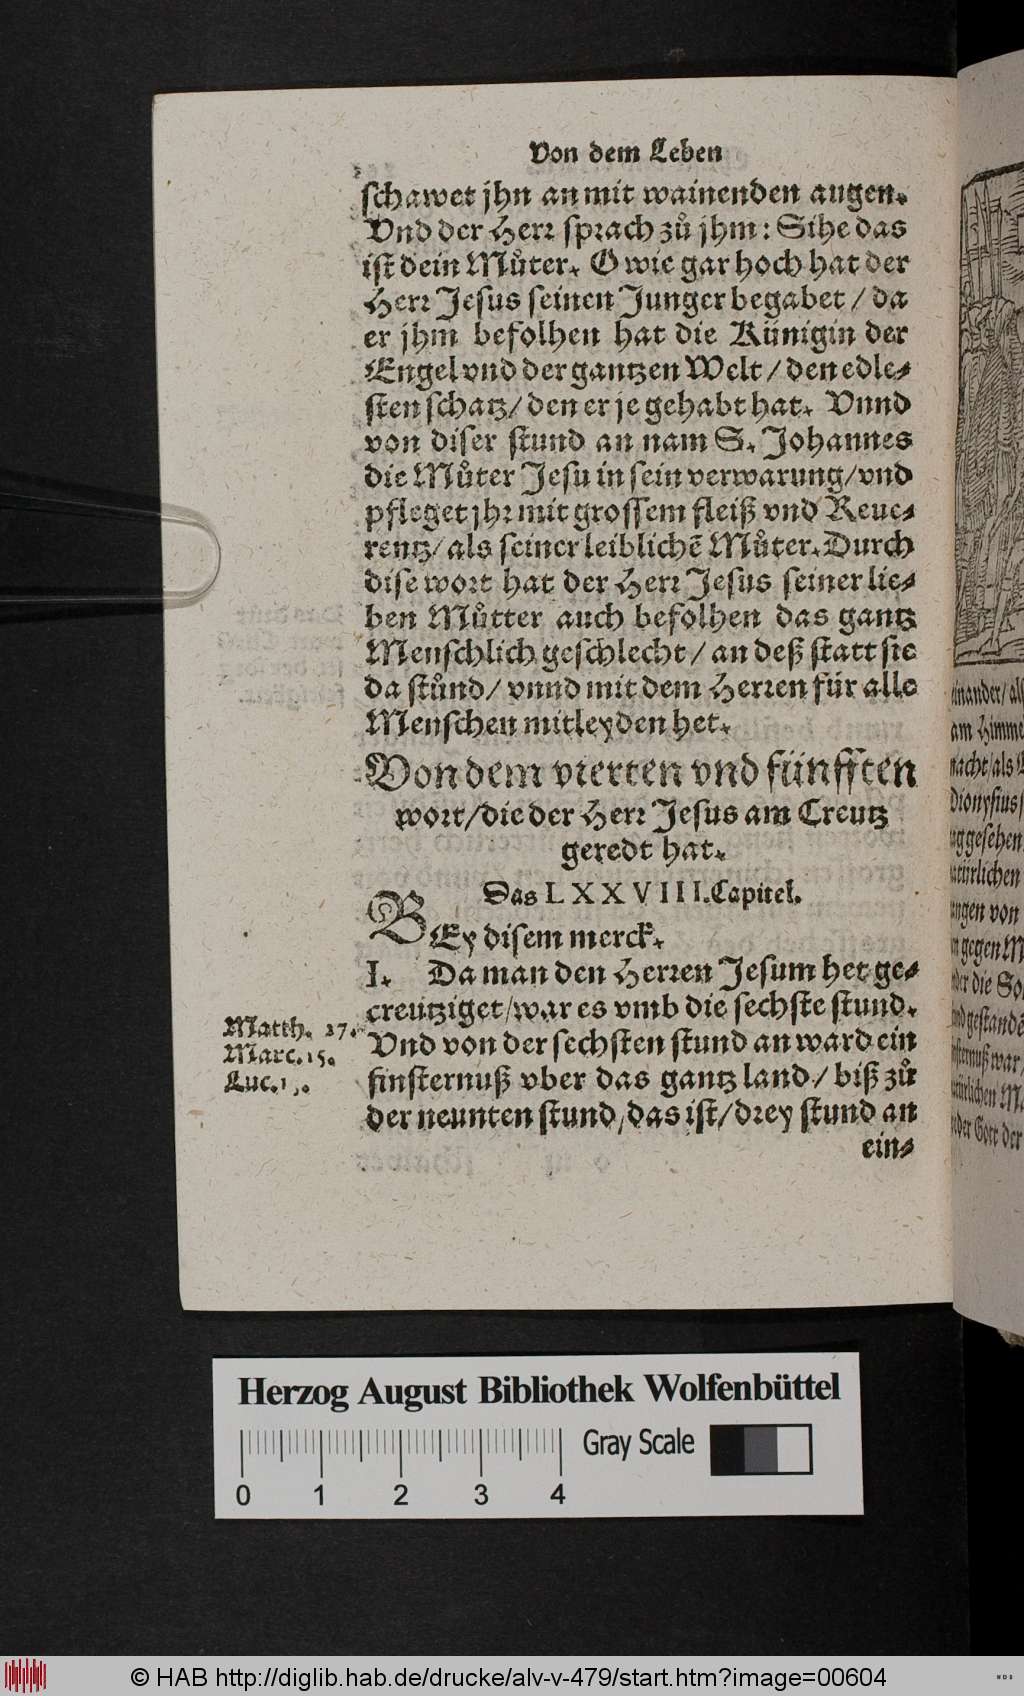 Von dem Leben
schawet jhn an mit wainenden augen.
Vnd der Herr sprach zů jhm: Sihe das
ist dein Můter. O wie gar hoch hat der
Herr Jesus seinen Junger begabet / da
er jhm befolhen hat die Künigin der
Engel vnd der gantzen Welt / den edle-
sten schatz / den er je gehabt hat. Vnnd
von diser stund an nam S. Johannes
die Můter Jesu in sein verwarung / vnd
pfleget jhr mit grossem fleiß vnd Reue-
rentz / als seiner leiblichē Můter. Durch
dise wort hat der Herr Jesus seiner lie-
ben Můtter auch befolhen das gantz
Menschlich geschlecht / an deß statt sie
da stůnd / vnnd mit dem Herren für alle
Menschen mitleyden het.
Von dem vierten vnd fünfften
wort / die der Herr Jesus am Creutz
geredt hat.
Das LXXVIII. Capitel.
BEy disem merck.
I. Da man den Herren Jesum het ge-
creutziget / war es vmb die sechste stund.
Matth. 27.
Marc. 15.
Luc.
Vnd von der sechsten stund an ward ein
finsternuß vber das gantz land / biß zů
der neunten stund / das ist / drey stund an
ein-
inander / als
am Himme
macht / als
Dionysius /
gesehen
natürlichen
ungen von
gegen
die
gestandē
war /
der Gott der
Herzog August Bibliothek Wolfenbüttel
0 1 2 3 4
Gray Scale
© HAB http://diglib.hab.de/drucke/alv-v-479/start.htm?image=00604